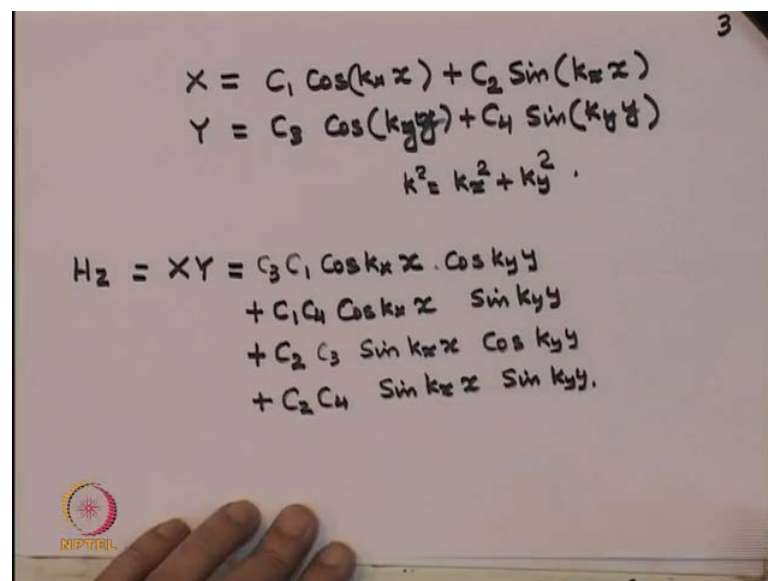 3
X = C₁ Cos(kₓ x) + C₂ Sin(kₓ x)
Y = C₃ Cos(k_y y) + C₄ Sin(k_y y)
k² = kₓ² + k_y² .
Hz = XY = C₃ C₁ Cos kₓ x . Cos k_y y
+ C₁ C₄ Cos kₓ x Sin k_y y
+ C₂ C₃ Sin kₓ x Cos k_y y
+ C₂ C₄ Sin kₓ x Sin k_y y.
NPTEL